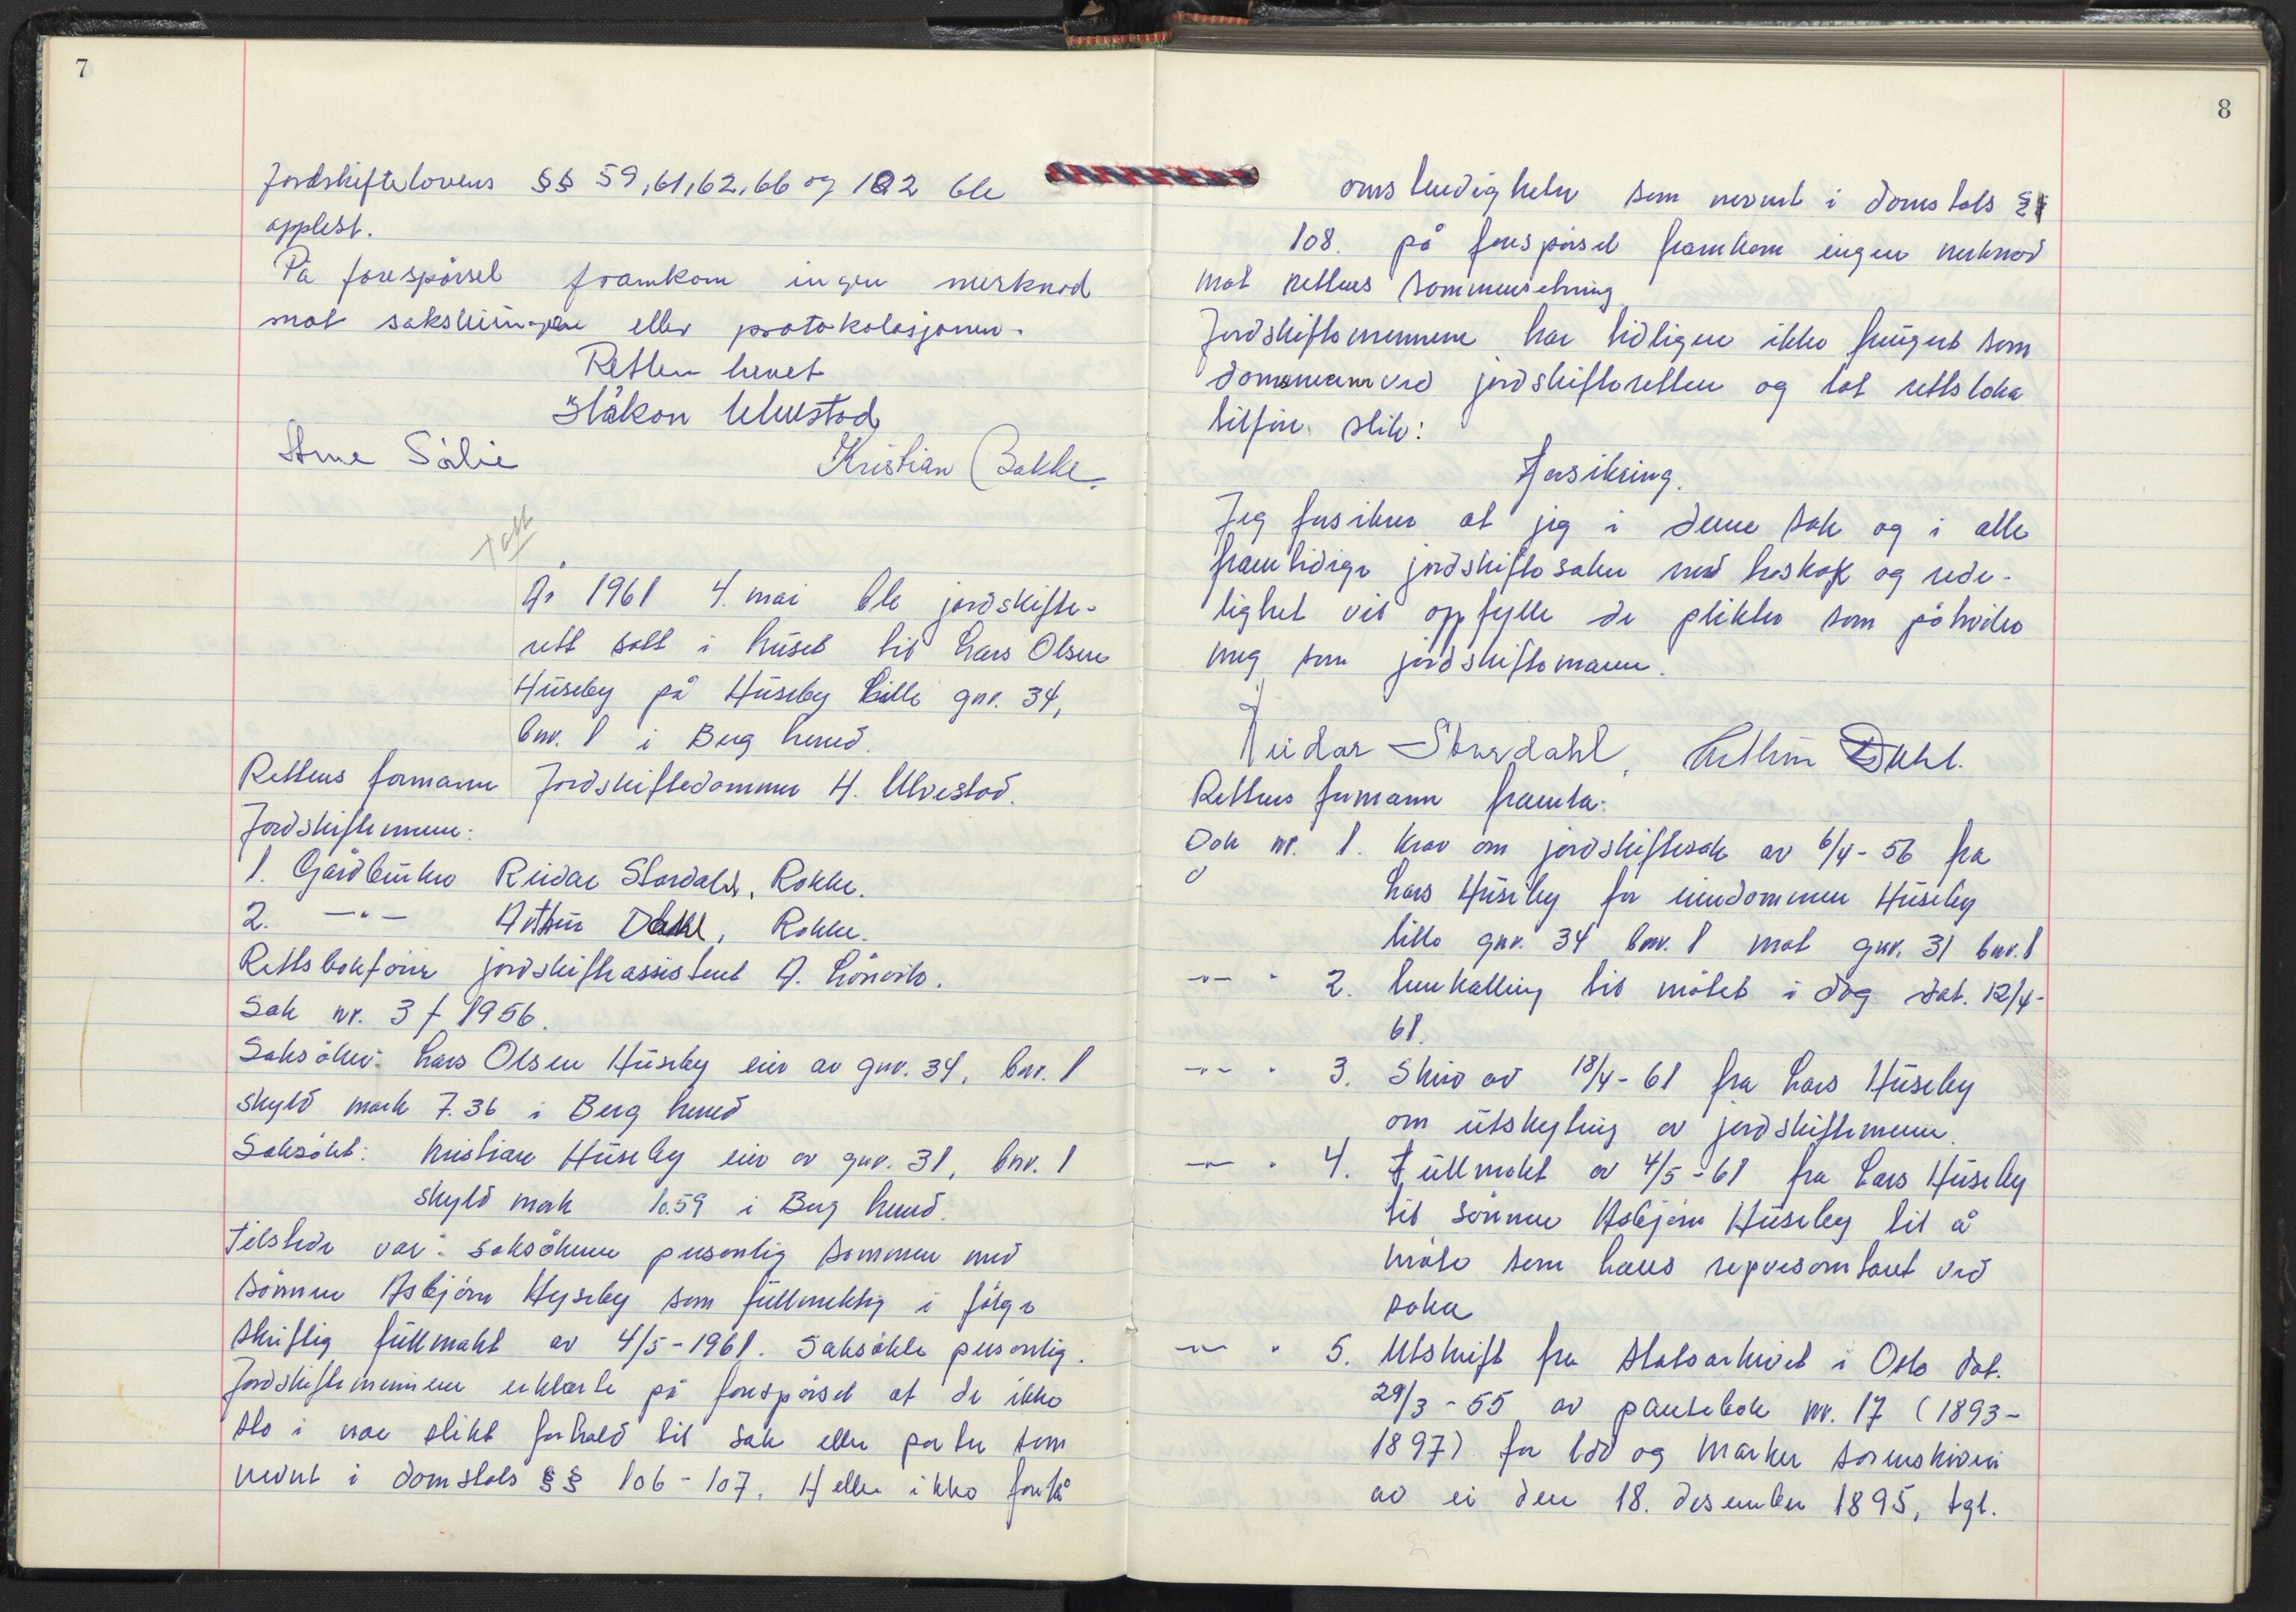 7
Jordskiftelovens §§ 59, 61, 62, 66 og 102 ble
opplest.
På forespørsel framkom ingen merknad
mot saksheimingen eller protokolasjonen.
Retten hevet
Håkon Ulvestad
Arne Sølie Kristian Bakke.
År 1961 4. mai ble jordskifte-
rett satt i huset til Lars Olsen
Huseby på Huseby lille gnr. 34,
bnr. 1 i Berg herred.
Rettens formann Jordskiftedommer H. Ulvestad.
Jordskiftemenn:
1. Gårdbruker Reidar Stordahl, Rokke.
2. —"— Arthur Dahl, Rokke.
Rettsbokfører jordskifteassistent A. Lønvik.
Sak nr. 3 / 1956.
Saksøker: Lars Olsen Huseby eier av gnr. 34, bnr. 1
skyld mark 7.36 i Berg herred
Saksøkt: Kristian Huseby eier av gnr. 31, bnr. 1
skyld mark 10.59 i Berg herred.
Tilstede var: saksøkeren personlig sammen med
sønnen Asbjørn Hyseby som fullmektig i følge
skriftlig fullmakt av 4/5-1961. Saksøkte personlig.
Jordskiftemennene erklærte på forespørsel at de ikke
sto i noe slikt forhold til sak eller parter som
nevnt i domstols §§ 106-107. Heller ikke forelå
8
omstendigheter som nevnt i domstols §
108. på forespørsel framkom ingen merknad
mot rettens sammensetning
Jordskiftemennene har tidligere ikke fungert som
domsmenn ved jordskifteretten og lot rettsboka
tilføre slik:
Forsikring.
Jeg forsikrer at jeg i denne sak og i alle
framtidige jordskiftesaker med troskap og rede-
lighet vil oppfylle de plikter som påhviler
meg som jordskiftemann.
Reidar Stordahl, Arthur Dahl.
Rettens formann framla:
Dok nr. 1. Krav om jordskiftesak av 6/4-56 fra
Lars Huseby for eiendommen Huseby
lille gnr. 34 bnr. 1 mot gnr. 31 bnr. 1
—"— " 2. Innkalling til møtet i dag dat. 12/4-
61.
—"— " 3. Skriv av 18/4-61 fra Lars Huseby
om utskyting av jordskiftemenn.
—"— " 4. Fullmakt av 4/5-61 fra Lars Huseby
til sønnen Asbjørn Huseby til å
møte som hans representant ved
saka
—"— " 5. Utskrift fra statsarkivet i Oslo dat.
29/3-55 av pantebok nr. 17 (1893-
1897) for Idd og Marker sorenskriveri
av ei den 18. desember 1895, tgl.